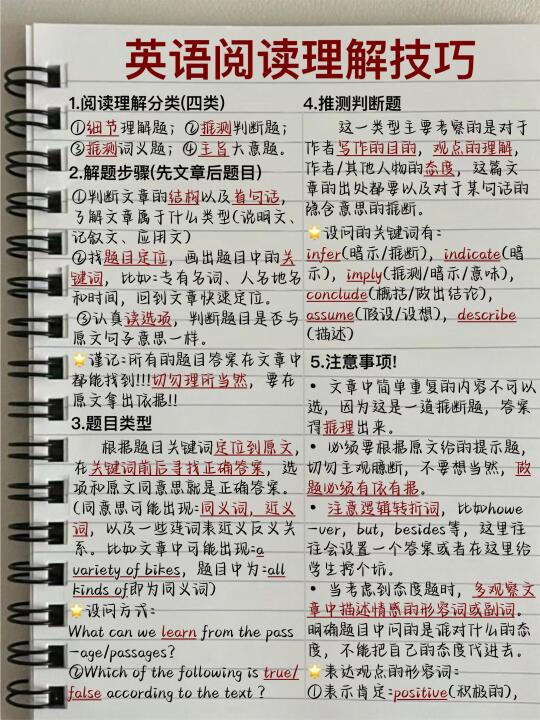 英语阅读理解技巧
1.阅读理解分类(四类)
①细节理解题；②推测判断题；
③推测词义题；④主旨大意题。
2.解题步骤(先文章后题目)
①判断文章的结构以及首句话，
了解文章属于什么类型(说明文、
记叙文、应用文)
②找题目定位，画出题目中的关
键词，比如:专有名词、人名地名
和时间，回到文章快速定位。
③认真读选项，判断题目是否与
原文句子意思一样。
🌟谨记:所有的题目答案在文章中
都能找到!!!切勿理所当然，要在
原文拿出依据!!
3.题目类型
根据题目关键词定位到原文，
在关键词前后寻找正确答案，选
项和原文同意思就是正确答案。
(同意思可能出现:同义词，近义
词，以及一些连词表近义反义关
系。比如文章中可能出现:a
variety of bikes，题目中为:all
kinds of即为同义词)
🌟设问方式:
What can we learn from the pass
-age/passages?
②Which of the following is true/
false according to the text ?
4.推测判断题
这一类型主要考察的是对于
作者写作的目的，观点的理解，
作者/其他人物的态度，这篇文
章的出处都要以及对于某句话的
隐含意思的推断。
🌟设问的关键词有:
infer(暗示/推断), indicate(暗
示), imply(推测/暗示/意味),
conclude(概括/做出结论),
assume(假设/设想), describe
(描述)
5.注意事项!
• 文章中简单重复的内容不可以
选，因为这是一道推断题，答案
得推理出来。
• 必须要根据原文给的提示题，
切勿主观臆断，不要想当然，做
题必须有依有据。
• 注意逻辑转折词，比如howe
-ver, but, besides等，这里往
往会设置一个答案或者在这里给
学生挖个坑。
• 当考虑到态度题时，多观察文
章中描述情感的形容词或副词。
明确题目中问的是谁对什么的态
度，不能把自己的态度代进去。
🌟表达观点的形容词:
①表示肯定:positive(积极的),